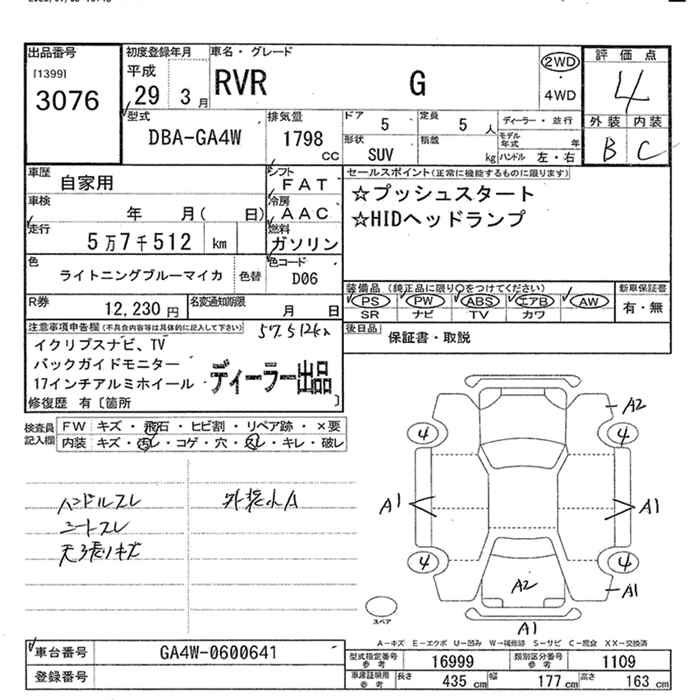 出品番号
[1399]
3076
初度登録年月
平成
29 3月
車名・グレード
RVR G
2WD
・
4WD
評価点
4
外装 内装
B C
型式
DBA-GA4W
排気量
1798
CC
ドア
5
定員
5 人
ディーラー・並行
モデル年式 年
形状
SUV
積載
kg
ハンドル 左・右
車歴
自家用
シフト
FAT
車検
年 月( 日)
冷房
AAC
走行
5万7千512 km
燃料
ガソリン
色
ライトニングブルーマイカ
色替
色コード
D06
R券
12,230円
名変通知期限
月 日
セールスポイント(正常に機能するものに限ります)
☆プッシュスタート
☆HIDヘッドランプ
装備品(純正品に限り○をつけてください)
PS PW ABS エアB AW
SR ナビ TV カワ
新車保証書
有・無
後日品
保証書・取説
注意事項申告欄(不具合内容等は具体的に記入して下さい)
57512km
イクリプスナビ、TV
バックガイドモニター
17インチアルミホイール
ディーラー出品
修復歴 有[箇所 ]
検査員記入欄
FW キズ・飛石・ヒビ割・リペア跡・×要
内装 キズ・汚レ・コゲ・穴・スレ・キレ・破レ
ハンドルスレ
シートスレ
天張リキズ
外装小A
A2
4 4
A1 A1
4 4
A2 A1
A1
スペア
A-キズ E-エクボ U-凹み W-補修跡 S-サビ C-腐食 XX-交換済
車台番号
GA4W-0600641
登録番号
型式指定番号
参考
16999
類別区分番号
参考
1109
車庫証明用
参考
長さ
435 cm
幅
177 cm
高さ
163 cm